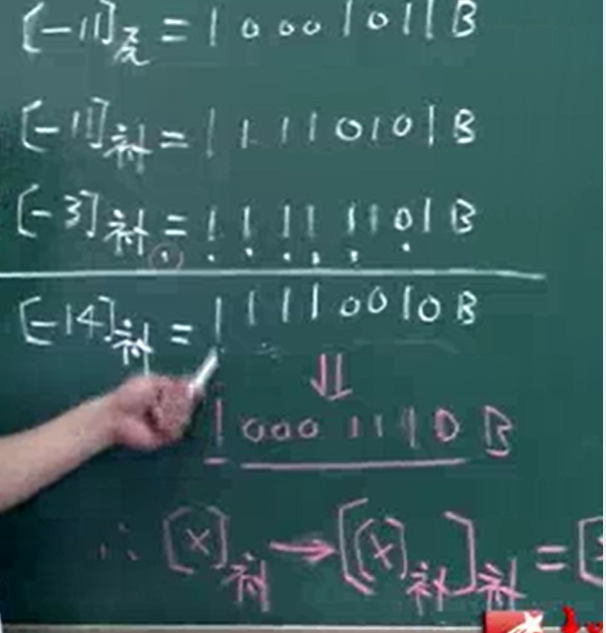 [-11]原 = 10001011B
[-11]补 = 11110101B
[-3]补 = 11111101B
[-14]补 = 11110010B
⇓
10001110B
∴ [X]补 → [[X]补]补 = [